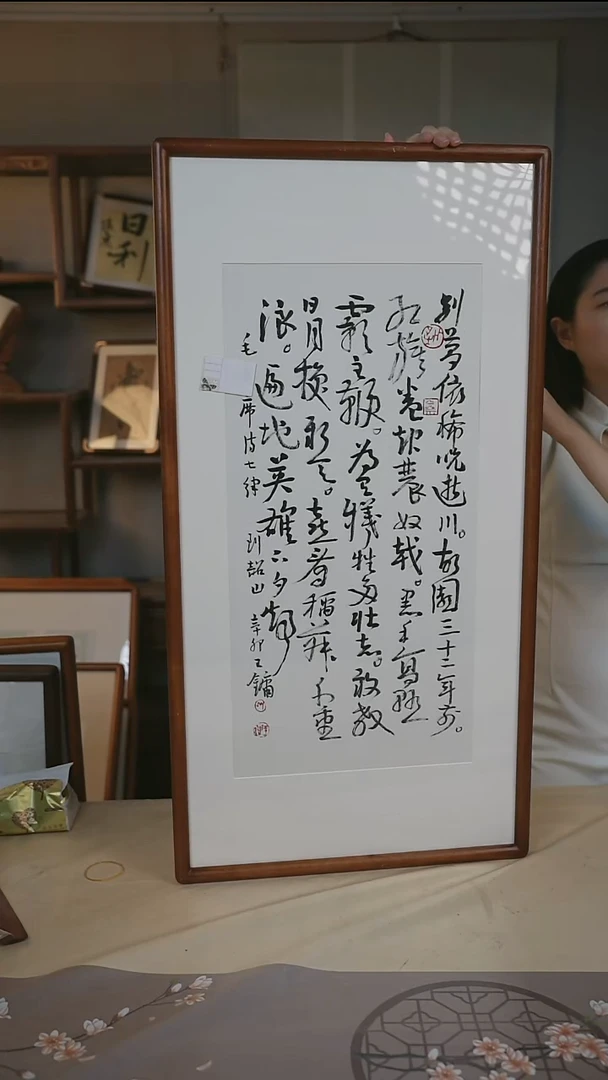 别夢依稀咒逝川。故園三十二年前。
红旗卷起農奴戟。黑手高悬
霸主鞭。为有犧牲多壮志。敢教
日月换新天。喜看稻菽千重
浪。遍地英雄下夕烟
毛 席诗七律 到韶山 辛卯王镛
日利